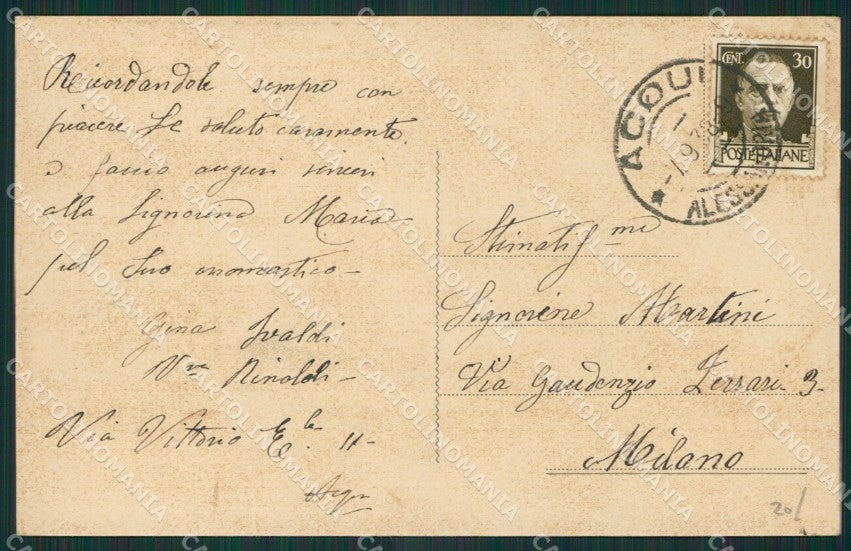 Ricordandole sempre con
piacere Le saluto caramente
e faccio auguri sinceri
alla Signorina Maria
pel Suo onomastico -
Gina Ivaldi
Vva Rinaldi -
Via Vittorio E.le 11 -
Acqui
CENT. 30
POSTE ITALIANE
ACQUI
ALESSANDRIA
Stimatissme
Signorine Martini
Via Gaudenzio Ferrari - 3 -
Milano
20/
CARTOLINOMANIA